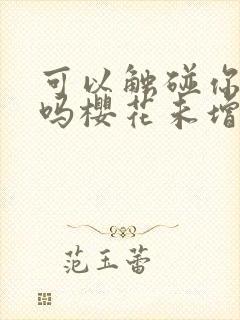 可以触碰你
吗樱花未增
范玉蕾